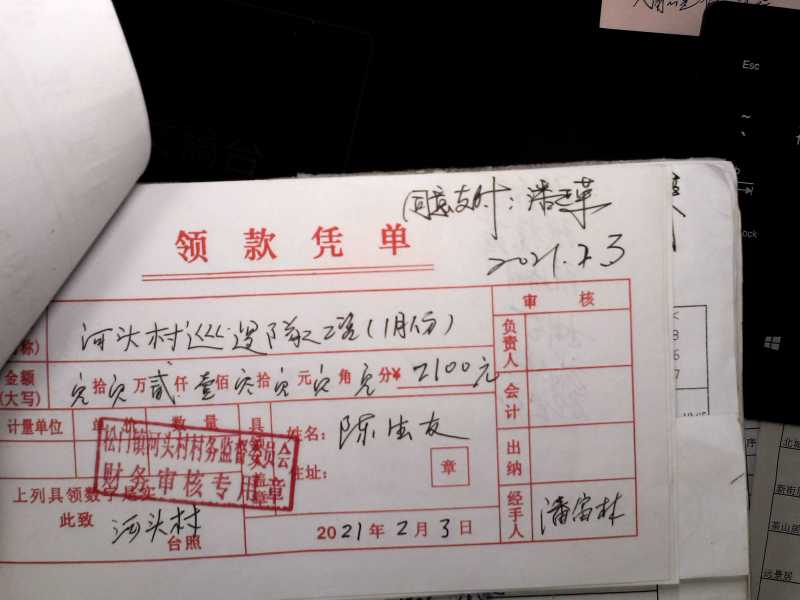 同意支付：
2021.2.3
领款凭单
审核
河头村巡逻队工资(1月份)
称)
负责人
金额
(大写)
零拾零万贰仟壹佰零拾零元零角零分¥2100元
会计
计量单位 单价 数量
姓名：陈生友
松门镇河头村村务监督委员会
财务审核专用章
出纳
住址：
章
上列具领数字是实
此致
河头村
台照
经手人
潘富林
2021年2月3日
Esc